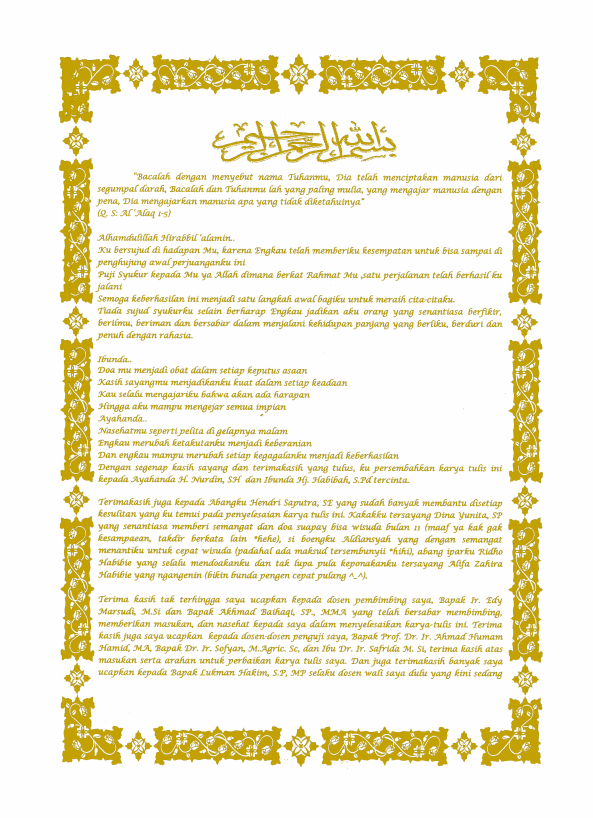 بسم الله الرحمن الرحيم
"Bacalah dengan menyebut nama Tuhanmu, Dia telah menciptakan manusia dari
segumpal darah, Bacalah dan Tuhanmu lah yang paling mulia, yang mengajar manusia dengan
pena, Dia mengajarkan manusia apa yang tidak diketahuinya"
(Q, S: Al 'Alaq 1-5)
Alhamdulillah Hirabbil 'alamin..
Ku bersujud di hadapan Mu, karena Engkau telah memberiku kesempatan untuk bisa sampai di
penghujung awal perjuanganku ini
Puji Syukur kepada Mu ya Allah dimana berkat Rahmat Mu ,satu perjalanan telah berhasil ku
jalani
Semoga keberhasilan ini menjadi satu langkah awal bagiku untuk meraih cita-citaku.
Tiada sujud syukurku selain berharap Engkau jadikan aku orang yang senantiasa berfikir,
berilmu, beriman dan bersabar dalam menjalani kehidupan panjang yang berliku, berduri dan
penuh dengan rahasia.
Ibunda..
Doa mu menjadi obat dalam setiap keputus asaan
Kasih sayangmu menjadikanku kuat dalam setiap keadaan
Kau selalu mengajariku bahwa akan ada harapan
Hingga aku mampu mengejar semua impian
Ayahanda..
Nasehatmu seperti pelita di gelapnya malam
Engkau merubah ketakutanku menjadi keberanian
Dan engkau mampu merubah setiap kegagalanku menjadi keberhasilan
Dengan segenap kasih sayang dan terimakasih yang tulus, ku persembahkan karya tulis ini
kepada Ayahanda H. Nurdin, SH dan Ibunda Hj. Habibah, S.Pd tercinta.
Terimakasih juga kepada Abangku Hendri Saputra, SE yang sudah banyak membantu disetiap
kesulitan yang ku temui pada penyelesaian karya tulis ini. Kakakku tersayang Dina Yunita, SP
yang senantiasa memberi semangat dan doa suapay bisa wisuda bulan 11 (maaf ya kak gak
kesampaean, takdir berkata lain *hehe), si boengku Aldiansyah yang dengan semangat
menantiku untuk cepat wisuda (padahal ada maksud tersembunyii *hihi), abang iparku Ridho
Habibie yang selalu mendoakanku dan tak lupa pula keponakanku tersayang Alifa Zahira
Habibie yang ngangenin (bikin bunda pengen cepat pulang ^_^).
Terima kasih tak terhingga saya ucapkan kepada dosen pembimbing saya, Bapak Ir. Edy
Marsudi, M.Si dan Bapak Akhmad Baihaqi, SP., MMA yang telah bersabar membimbing,
memberikan masukan, dan nasehat kepada saya dalam menyelesaikan karya-tulis ini. Terima
kasih juga saya ucapkan kepada dosen-dosen penguji saya, Bapak Prof. Dr. Ir. Ahmad Humam
Hamid, MA, Bapak Dr. Ir. Sofyan, M.Agric. Sc, dan Ibu Dr. Ir. Safrida M. Si, terima kasih atas
masukan serta arahan untuk perbaikan karya tulis saya. Dan juga terimakasih banyak saya
ucapkan kepada Bapak Lukman Hakim, S.P, MP selaku dosen wali saya dulu yang kini sedang